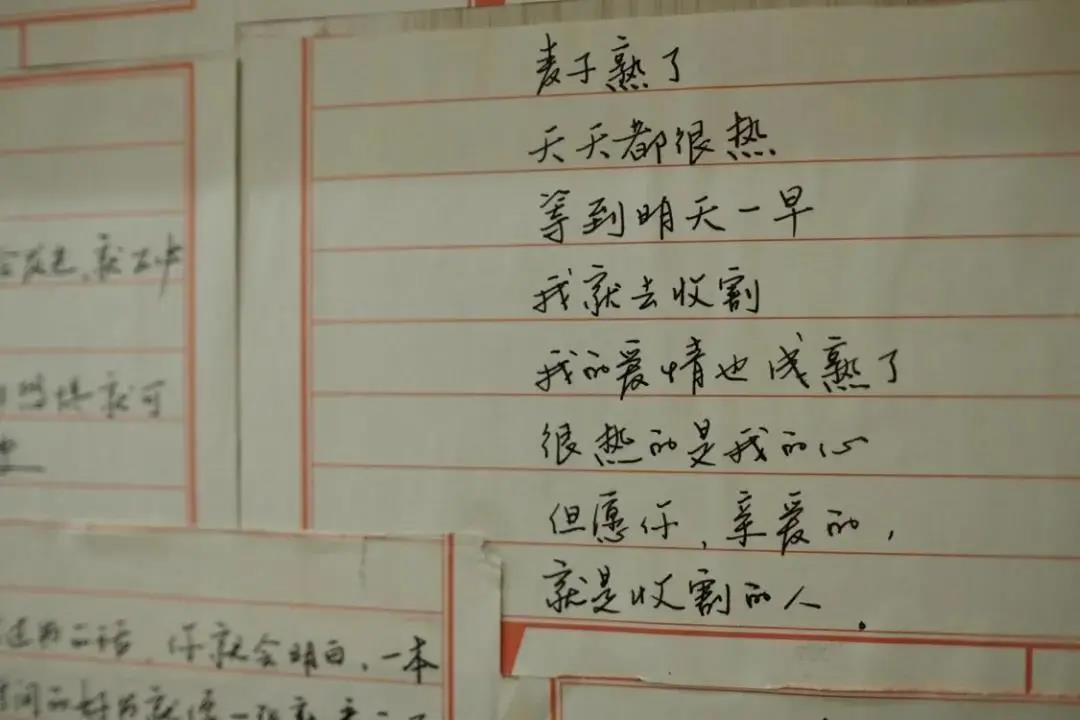 麦子熟了
天天都很热
等到明天一早
我就去收割
我的爱情也成熟了
很热的是我的心
但愿你、亲爱的,
就是收割的人。
就可
你就会明白、一本